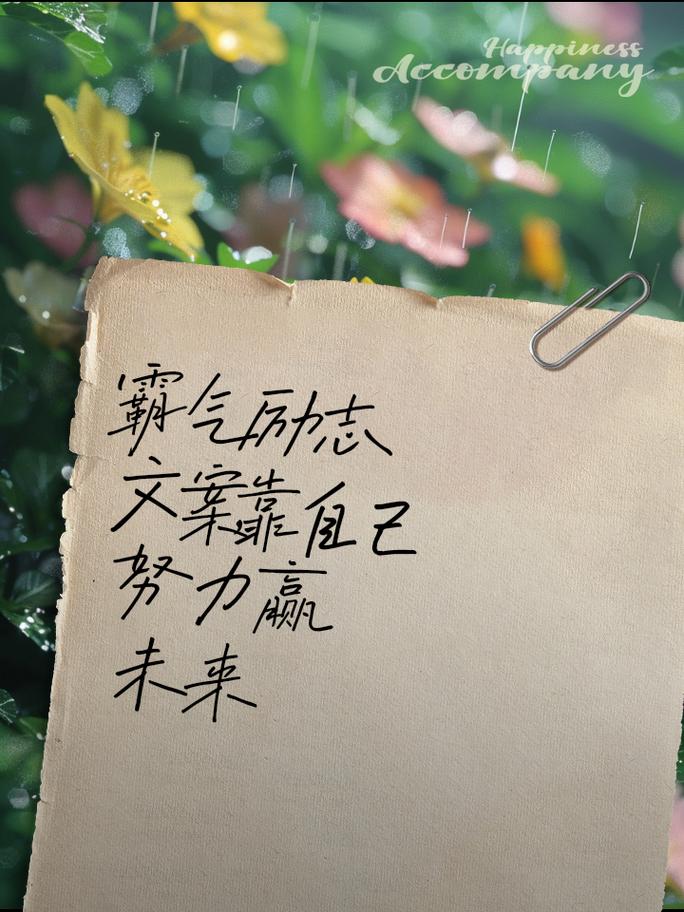 Happiness
Accompany
霸气励志
文案靠自己
努力赢
未来